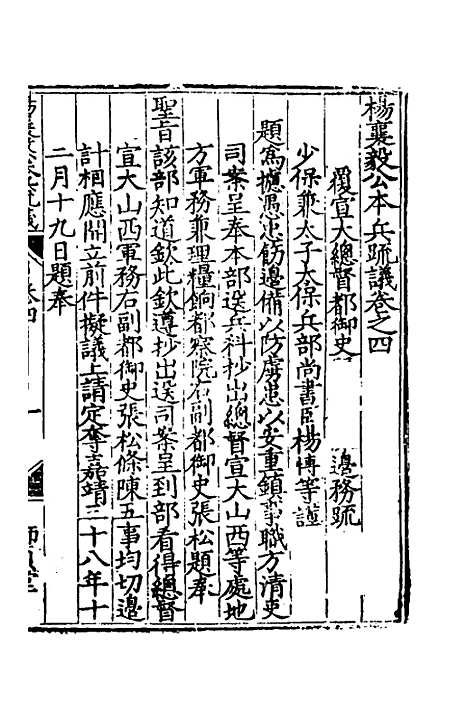 楊襄毅公本兵疏議卷之四
覆宣大總督都御史 邊務疏
少保兼太子太保兵部尚書臣楊博等謹
題爲攄愚忠飭邊備以防虜患以安重鎮事職方清吏
司案呈奉本部送兵科抄出總督宣大山西等處地
方軍務兼理糧餉都察院右副都御史張松題奉
聖旨該部知道欽此欽遵抄出送司案呈到部看得總督
宣大山西軍務右副都御史張松條陳五事均切邊
計相應開立前件擬議上請定奪嘉靖三十八年十
二月十九日題奉